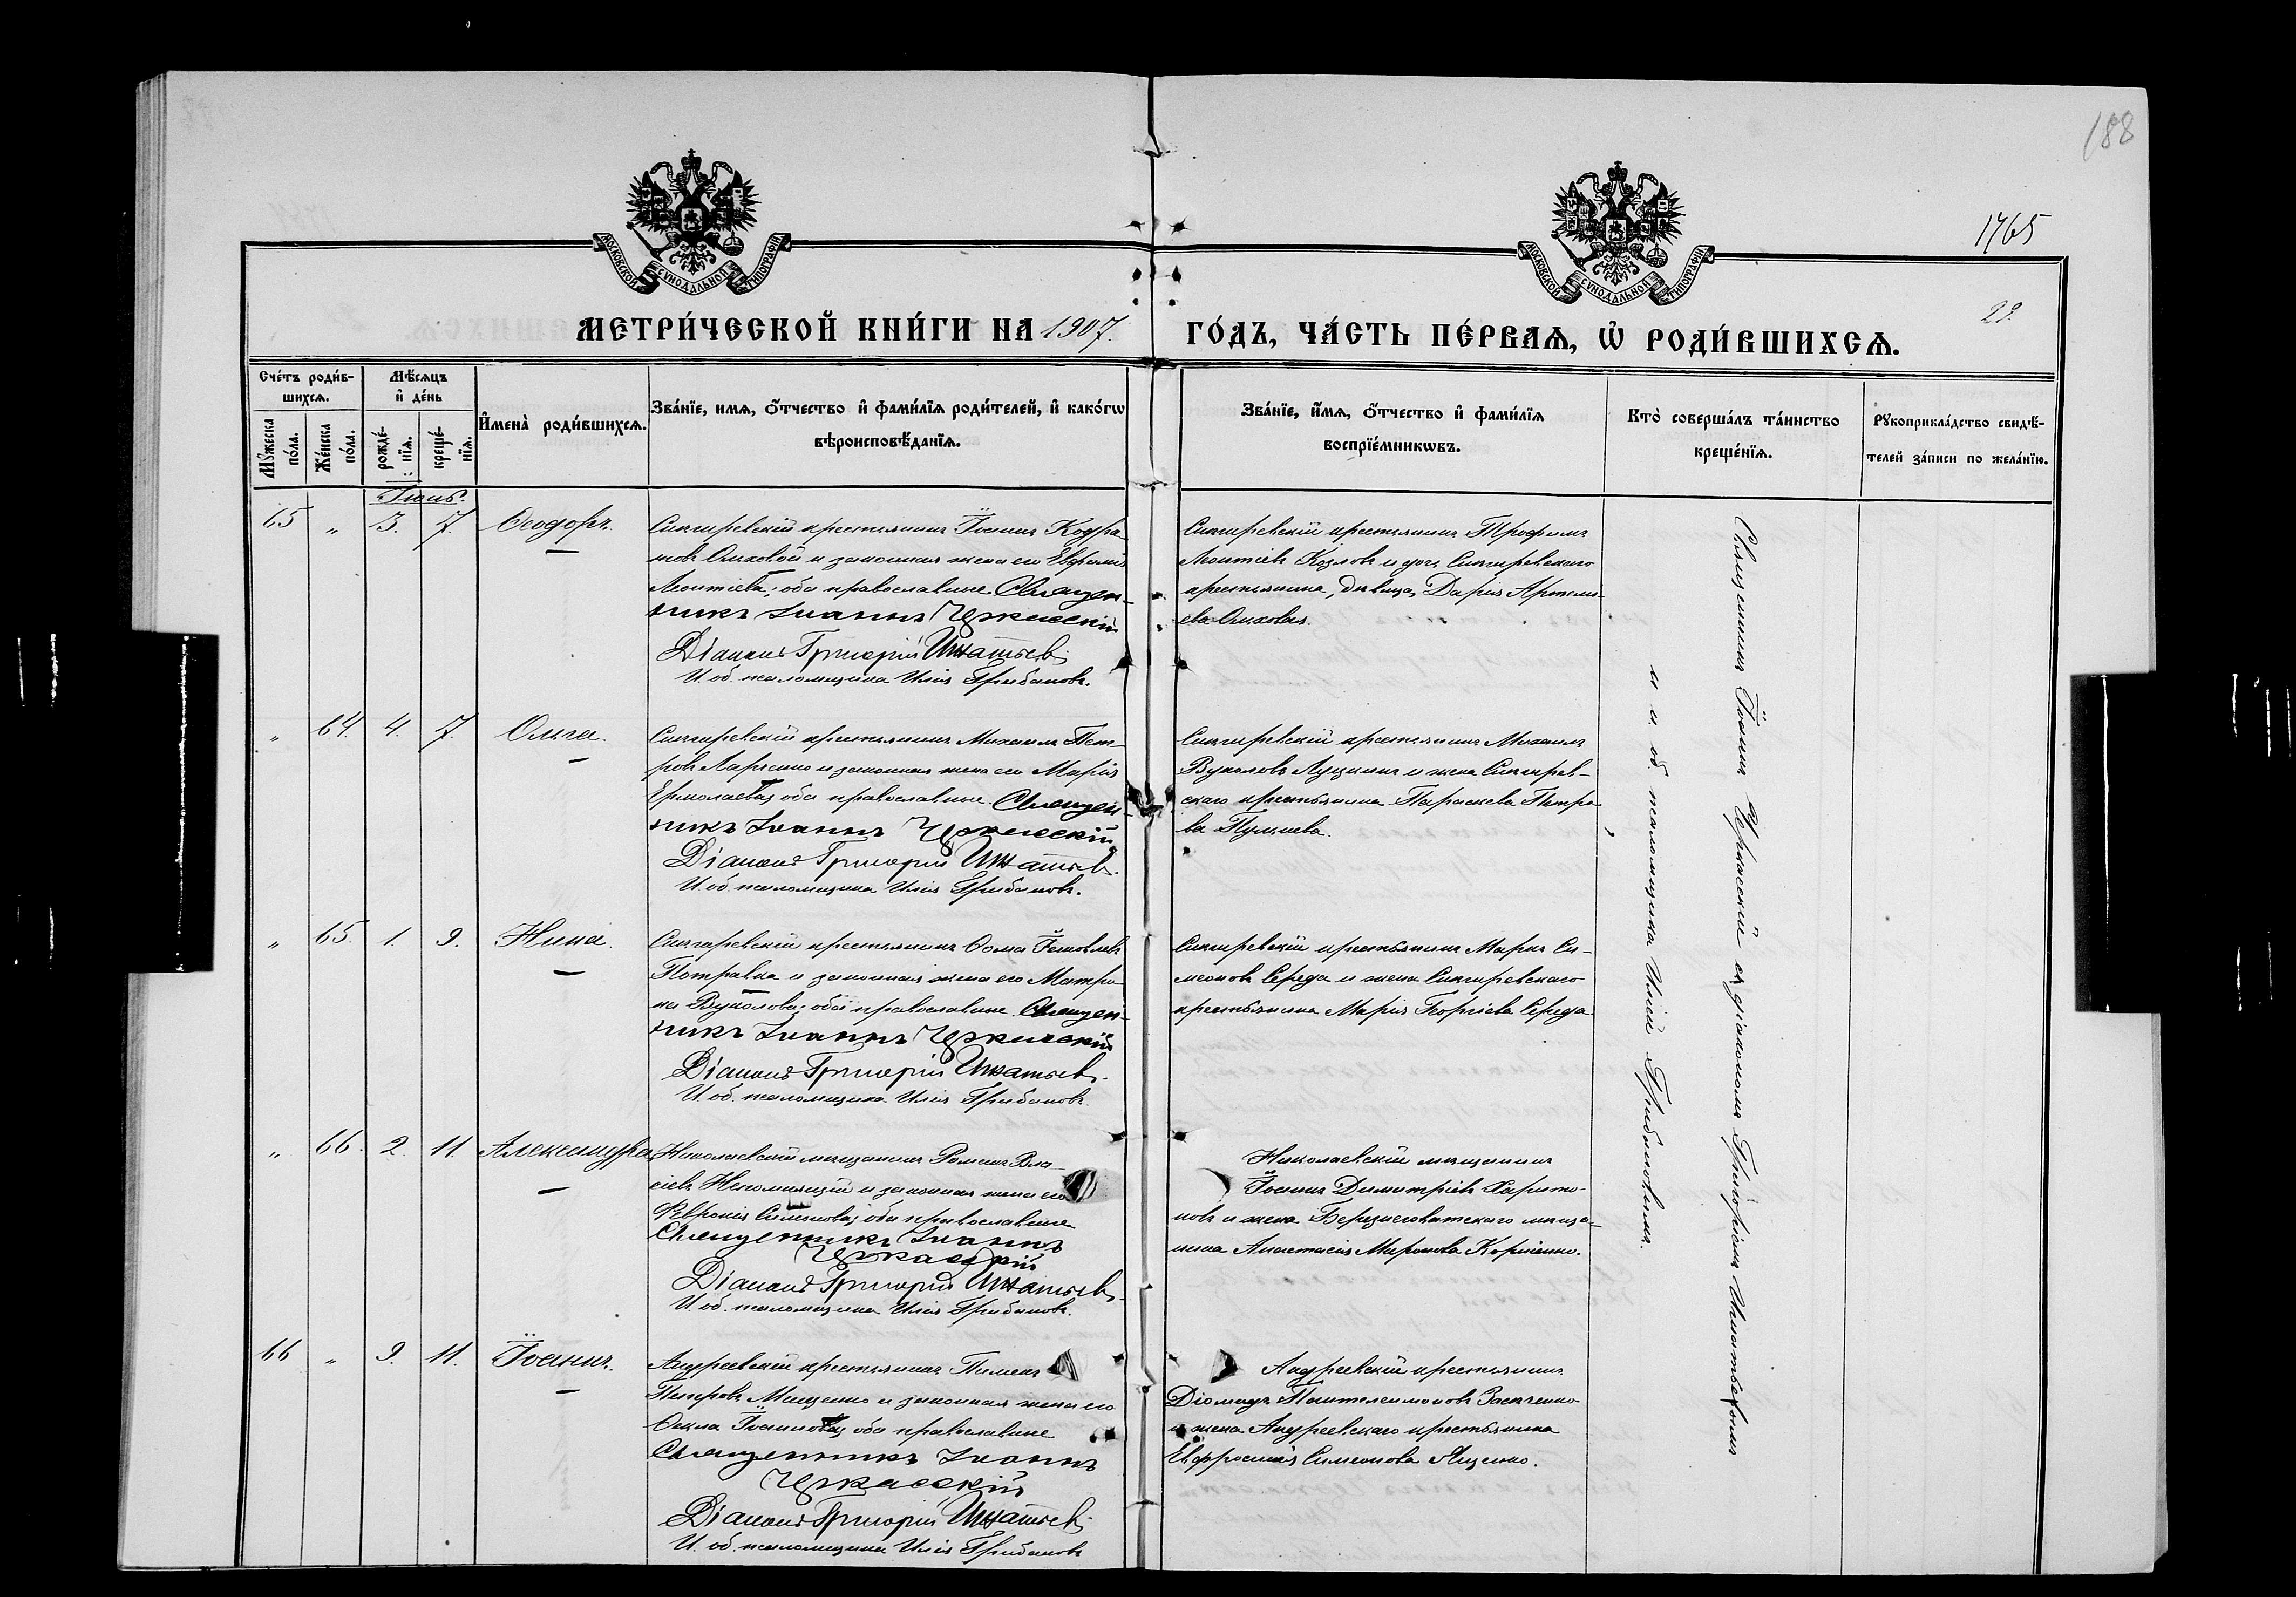 188
1765
22.
МОСКОВСКОЙ СѴНОДАЛЬНОЙ ТИПОГРАФІИ
МОСКОВСКОЙ СѴНОДАЛЬНОЙ ТИПОГРАФІИ
МЕТРИ́ЧЕСКОЙ КНИ́ГИ НА 1907. ГО́ДЪ, ЧА́СТЬ ПЕ́РВАѦ, Ѡ҆ РОДИ́ВШИХСѦ.
Сче́тъ роди́в-
шихсѧ.
Мꙋ́жеска
по́ла.
Же́нска
по́ла.
Мѣ́сѧцъ
и҆ де́нь
рожде́-
нїѧ.
креще́-
нїѧ.
И҆мена̀ роди́вшихсѧ.
Зва́нїе, имѧ, ѻ҆́тчество и҆ фами́лїѧ роди́телей, и҆ како́гѡ
вѣроисповѣ́данїѧ.
Зва́нїе, и҆́мѧ, ѻ҆́тчество и҆ фами́лїѧ
воспрїе́мникѡвъ.
Кто̀ соверша́лъ та́инство
креще́нїѧ.
Рꙋкоприкла́дство свидѣ́-
телей за́писи по жела́нїю.
Іюнь.
65 „ 3. 7. Ѳеодоръ.
Снигиревскій крестьянинъ Іоаннъ Кодра-
товъ Ольховой и законная жена его Евфимія
Леонтіева; оба православные. Священ-
никъ Іоаннъ Черкасскій
Діаконъ Григорій Игнатьевъ
И. об. псаломщика Илія Грибановъ.
Снигиревскій крестьянинъ Трофимъ
Леонтіевъ Козловъ и дочь Снигиревскаго
крестьянина, дѣвица, Дарія Артемі-
ева Ольховая.
„ 64. 4. 7. Ольга.
Снигиревскій крестьянинъ Михаилъ Пет-
ровъ и законная жена его Марія
Ермолаева; оба православные. Священ-
никъ Іоаннъ Черкасскій
Діаконъ Григорій Игнатьевъ.
И. об. псаломщика Илія Грибановъ.
Снигиревскій крестьянинъ Михаилъ
Вуколовъ и жена Снигирев-
скаго крестьянина Параскева Петро-
ва
„ 65. 1. 9. Нина.
Снигиревскій крестьянинъ Ѳома Іаковлевъ
Потравка и законная жена его Матро-
на Вуколова; оба православные. Священ-
никъ Іоаннъ Черкасскій
Діаконъ Григорій Игнатьевъ.
И. об. псаломщика Илія Грибановъ.
Снигиревскій крестьянинъ Маркъ Си-
меоновъ Середа и жена Снигиревскаго
крестьянина Марія Георгіева Середа
„ 66. 2. 11. Александра
Николаевскій мѣщанинъ Романъ Вла-
сіевъ и законная жена его
Февронія оба православные
Священникъ Іоаннъ
Черкасскій
Діаконъ Григорій Игнатьевъ.
И. об. псаломщика Илія Грибановъ.
Николаевскій мѣщанинъ
Іоаннъ Димитріевъ Харито-
новъ и жена Березнеговатскаго мѣща-
нина Анастасія Миронова Корніенко.
66 „ 9. 11. Іоаннъ.
Андреевскій крестьянинъ Пименъ
Петровъ Мищенко и законная жена его
Ѳекла Іоаннова; оба православные
Священникъ Іоаннъ
Черкасскій
Діаконъ Григорій Игнатьевъ
И. об. псаломщика Илія Грибановъ
Андреевскій крестьянинъ
Діомидъ Пантелеимоновъ
и жена Андреевскаго крестьянина
Евфросинія Симеонова Яценко.
Священникъ Іоаннъ Черкасскій съ діакономъ Григоріемъ Игнатьевымъ
и и. об. псаломщика Иліей Грибановымъ.